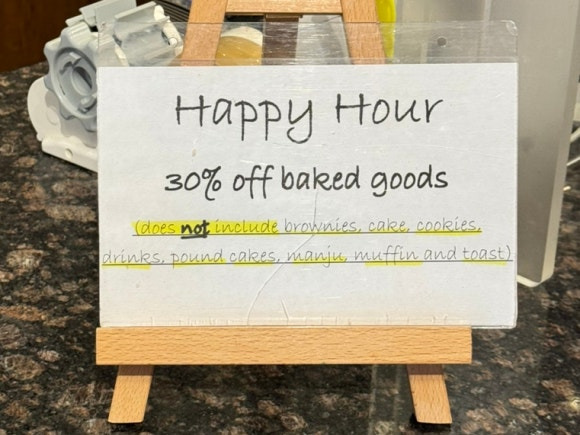 Happy Hour
30% off baked goods
(does not include brownies, cake, cookies,
drinks, pound cakes, manju, muffin and toast)